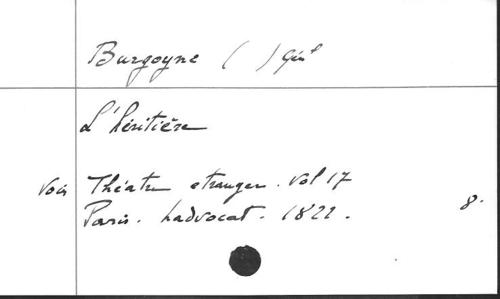 Burgoyne ( ) Gén^l
L'héritière
Voir Théatre etranger. Vol 17
Paris. Ladvocat. 1822. 8.